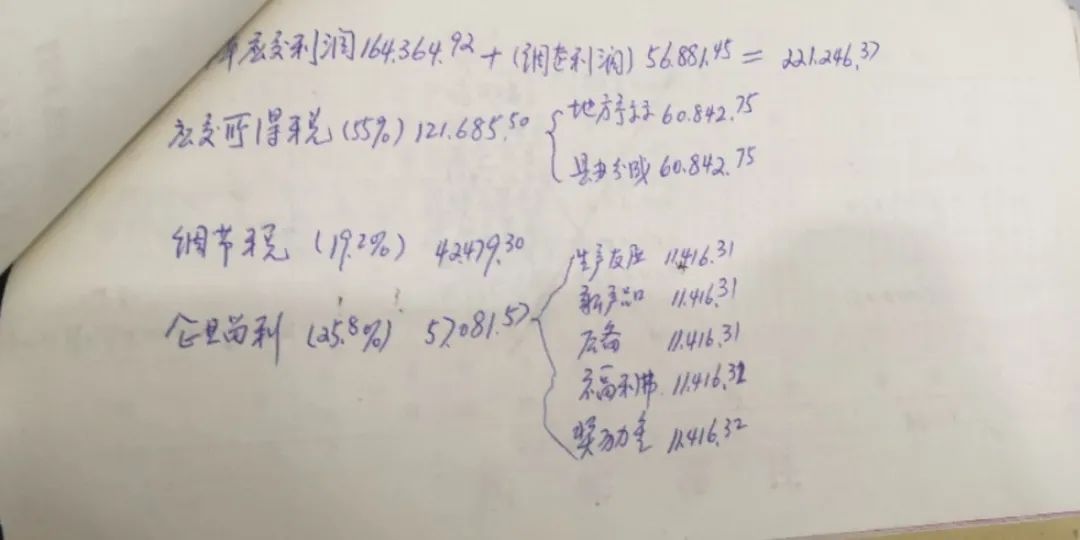 年应交利润164.364.92 + (调走利润) 56.881.45 = 221.246.37
应交所得税 (55%) 121.685.50
地方
60.842.75
县
分成 60.842.75
调节税 (19.2%) 42.479.30
企业留利 (25.8%) 57.081.57
生产发展 11.416.31
新产品 11.416.31
后备 11.416.31
福利费 11.416.32
奖励金 11.416.32